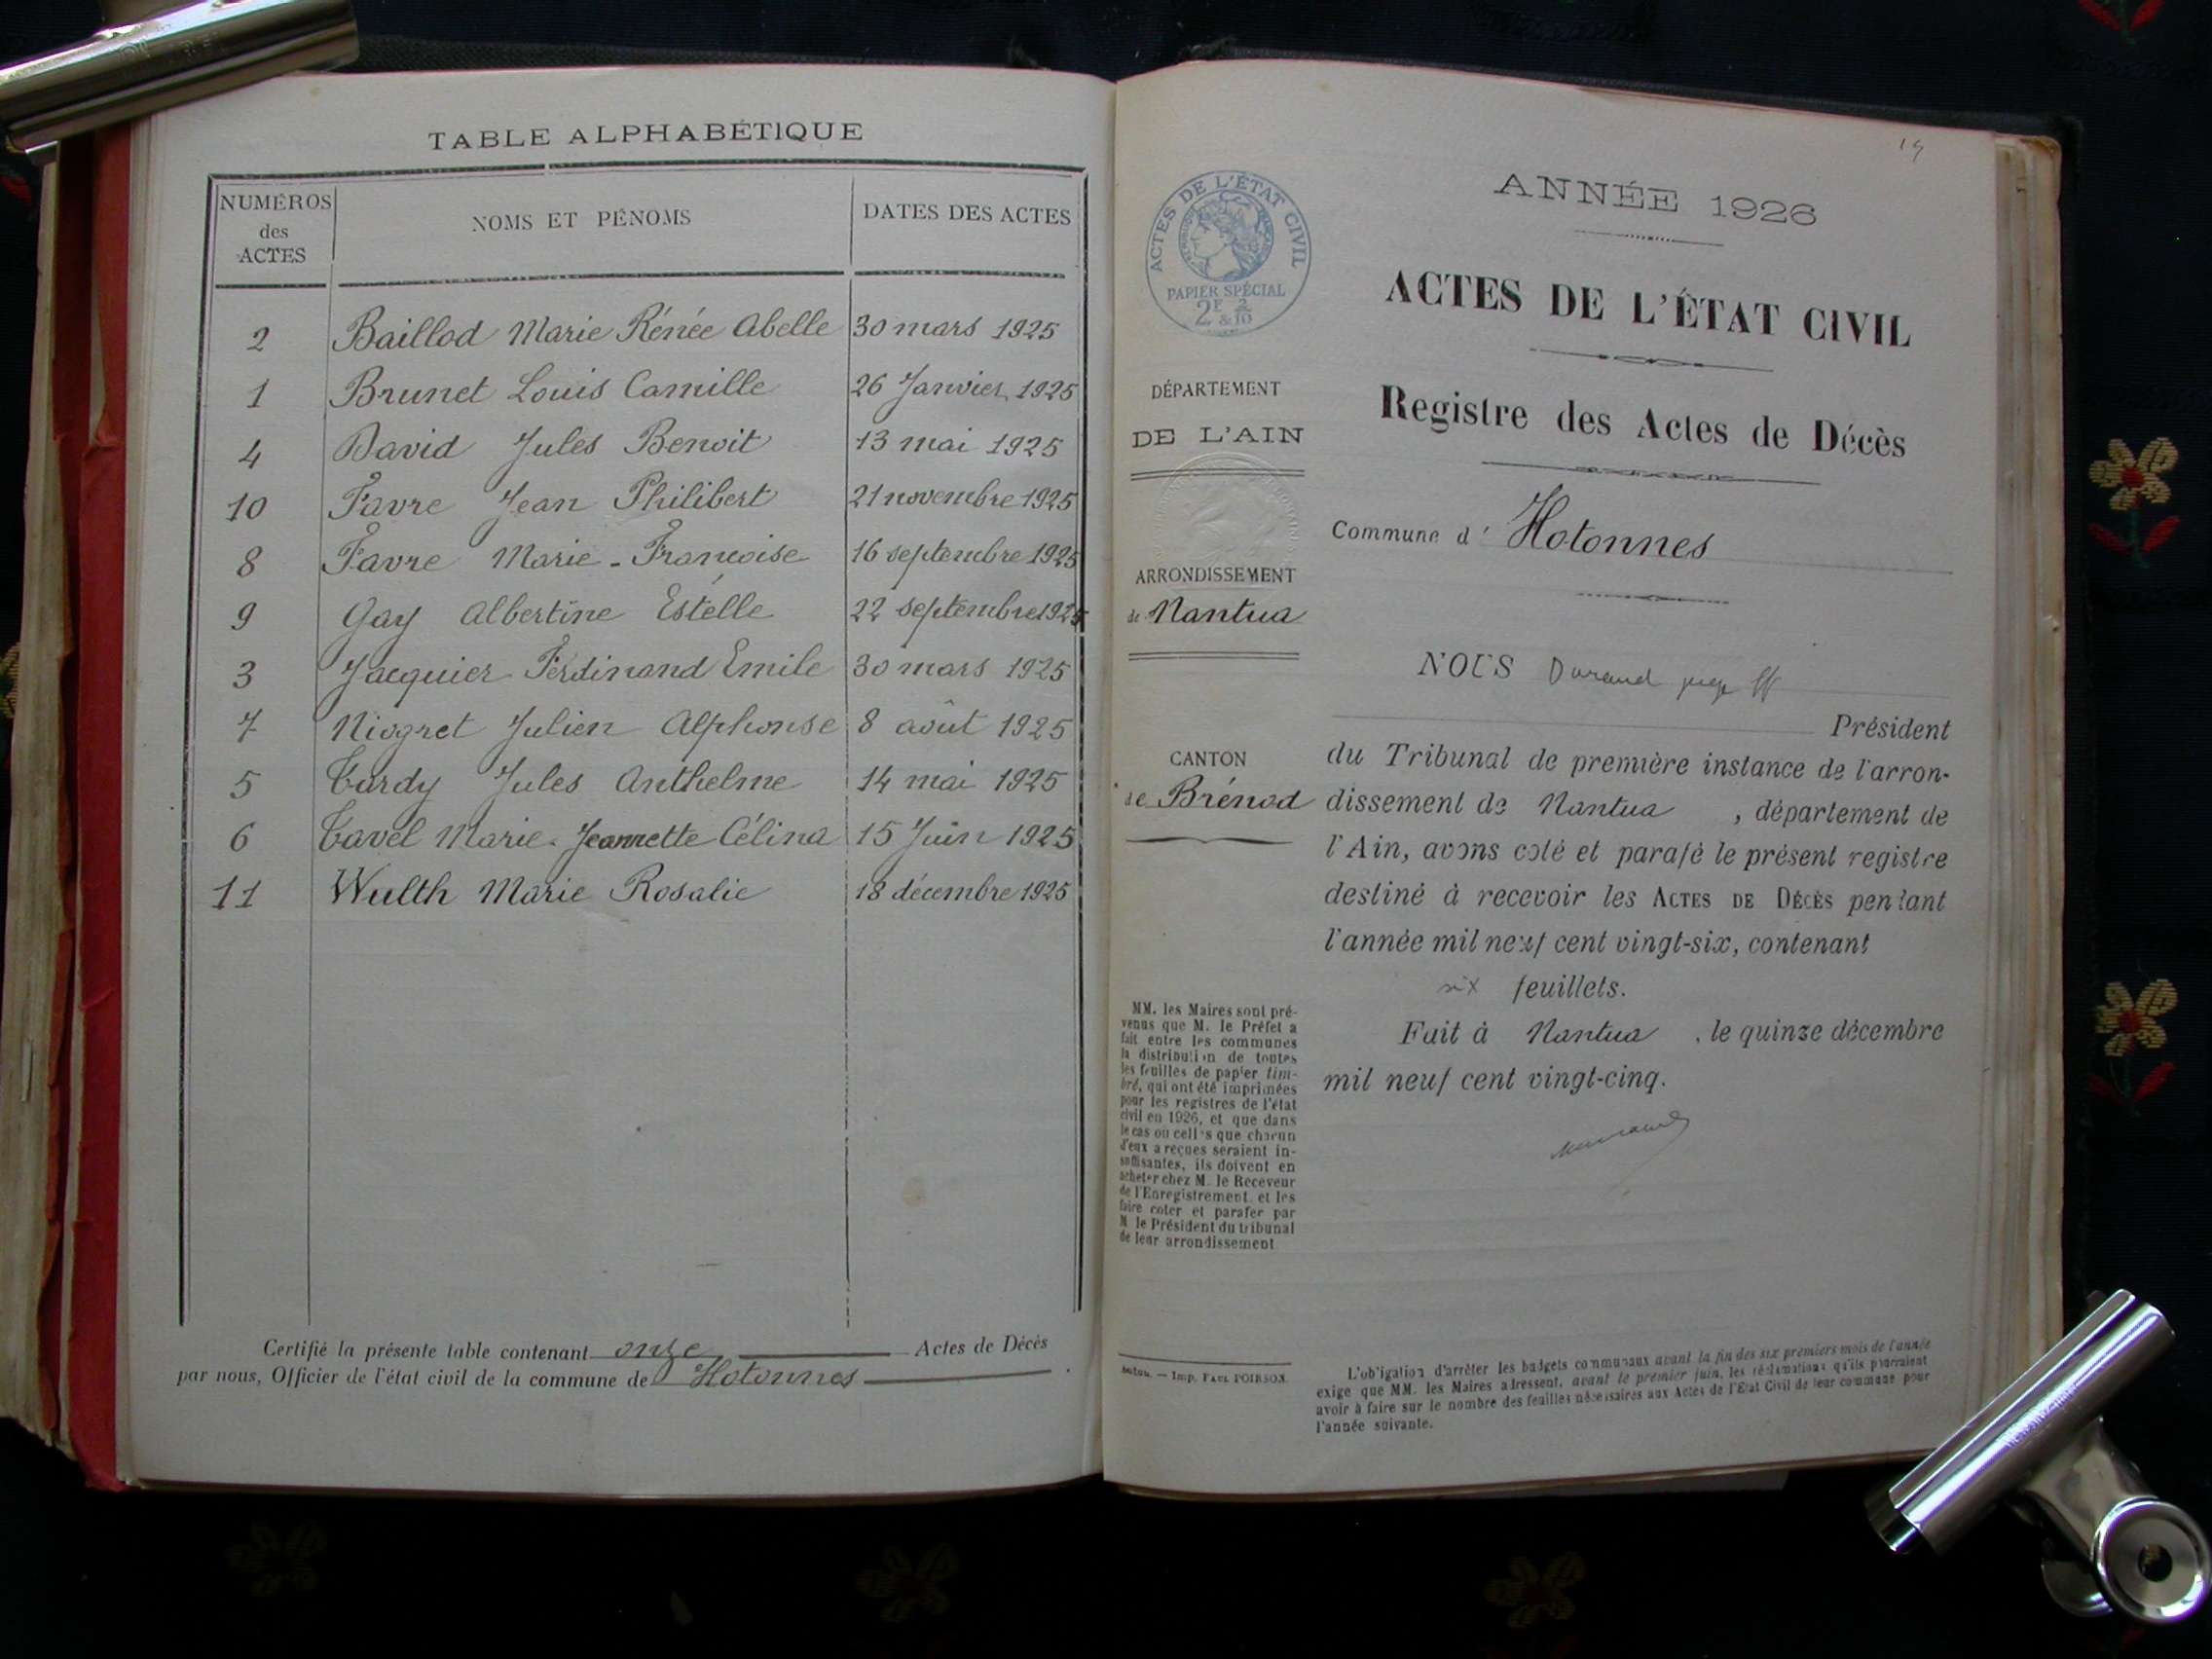 TABLE ALPHABÉTIQUE
NUMÉROS des ACTES
NOMS ET PÉNOMS
DATES DES ACTES
2 Baillod Marie Rénée Abelle 30 mars 1925
1 Brunet Louis Camille 26 Janvier 1925
4 David Jules Benoit 13 mai 1925
10 Favre Jean Philibert 21 novembre 1925
8 Favre Marie-Françoise 16 septembre 1925
9 Gay Albertine Estelle 22 septembre 1925
3 Jacquier Ferdinand Emile 30 mars 1925
7 Niogret Julien Alphonse 8 août 1925
5 Tardy Jules Anthelme 14 mai 1925
6 Tavel Marie-Jeannette Célina 15 Juin 1925
11 Wulth Marie Rosalie 18 décembre 1925
Certifié la présente table contenant onze Actes de Décès
par nous, Officier de l'état civil de la commune de Hotonnes
19
ACTES DE L'ÉTAT CIVIL
PAPIER SPÉCIAL
2F & 2/10
DÉPARTEMENT
DE L'AIN
ARRONDISSEMENT
de Nantua
CANTON
de Brénod
MM. les Maires sont pré-
venus que M. le Préfet a
fait entre les communes
la distribution de toutes
les feuilles de papier tim-
bré, qui ont été imprimées
pour les registres de l'état
civil en 1926, et que dans
le cas où celles que chacun
d'eux a reçues seraient in-
suffisantes, ils doivent en
acheter chez M. le Receveur
de l'Enregistrement et les
faire coter et parafer par
M le Président du tribunal
de leur arrondissement
Imp. PAUL POIRSON
ANNÉE 1926
ACTES DE L'ÉTAT CIVIL
Registre des Actes de Décès
Commune d' Hotonnes
NOUS Durand juge ff
Président
du Tribunal de première instance de l'arron-
dissement de Nantua, département de
l'Ain, avons coté et parafé le présent registre
destiné à recevoir les ACTES DE DÉCÈS pendant
l'année mil neuf cent vingt-six, contenant
six feuillets.
Fait à Nantua, le quinze décembre
mil neuf cent vingt-cinq.
L'obligation d'arrêter les budgets communaux avant la fin des six premiers mois de l'année
exige que MM. les Maires adressent, avant le premier juin, les réclamations qu'ils pourraient
avoir à faire sur le nombre des feuilles nécessaires aux Actes de l'Etat Civil de leur commune pour
l'année suivante.